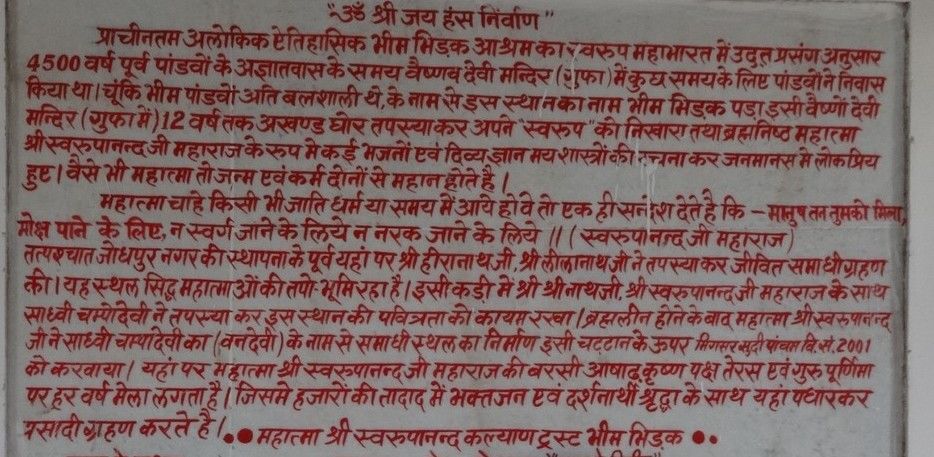 "ॐ श्री जय हंस निर्वाण"
प्राचीनतम अलोकिक ऐतिहासिक भीम भिड़क आश्रम का स्वरुप महाभारत में उद्धृत प्रसंग अनुसार
4500 वर्ष पूर्व पांडवों के अज्ञातवास के समय वैष्णव देवी मन्दिर (गुफा) में कुछ समय के लिए पांडवों ने निवास
किया था। चूंकि भीम पांडवों अति बलशाली थे, के नाम से इस स्थान का नाम भीम भिड़क पड़ा इसी वैष्णों देवी
मन्दिर (गुफा में) 12 वर्ष तक अखण्ड घोर तपस्या कर अपने "स्वरुप" को निखारा तथा ब्रह्मनिष्ठ महात्मा
श्री स्वरुपानन्द जी महाराज के रुप मे कई भजनों एवं दिव्य ज्ञान मय शास्त्रों की रचना कर जनमानस में लोकप्रिय
हुए। वैसे भी महात्मा तो जन्म एवं कर्म दोनों से महान होते है।
महात्मा चाहे किसी भी जाति धर्म या समय में आये हो वे तो एक ही सन्देश देते है कि - मानुष तन तुमको मिला,
मोक्ष पाने के लिए, न स्वर्ग जाने के लिये न नरक जाने के लिये ।। (स्वरुपानन्द जी महाराज)
तत्पश्चात जोधपुर नगर की स्थापना के पूर्व यहां पर श्री हीरानाथ जी, श्री लीलानाथ जी ने तपस्या कर जीवित समाधी ग्रहण
की। यह स्थल सिद्ध महात्माओं की तपो-भूमि रहा है। इसी कड़ी में श्री श्रीनाथजी, श्री स्वरुपानन्द जी महाराज के साथ
साध्वी चम्पोदेवी ने तपस्या कर इस स्थान की पवित्रता को कायम रखा। ब्रह्मलीन होने के बाद महात्मा श्री स्वरुपानन्द
जी ने साध्वी चम्पादेवी का (वनदेवी) के नाम से समाधी स्थल का निर्माण इसी चट्टान के ऊपर मिगसर सुदी पांचम वि.सं. 2001
को करवाया। यहां पर महात्मा श्री स्वरुपानन्द जी महाराज की बरसी आषाढ़ कृष्ण पक्ष तेरस एवं गुरु पूर्णिमा
पर हर वर्ष मेला लगता है। जिसमे हजारों की तादाद में भक्तजन एवं दर्शनार्थी श्रृद्धा के साथ यहां पधारकर
प्रसादी ग्रहण करते है। ●● महात्मा श्री स्वरुपानन्द कल्याण ट्रस्ट भीम भिड़क ●●